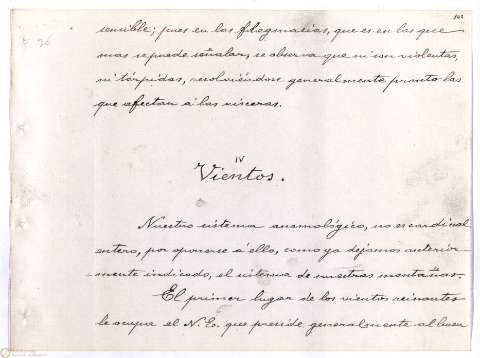 102
sensible; pues en las flegmacías, que es en las que
mas se puede señalar, se observa que ni son violentas,
ni tórpidas, resolviéndose generalmente pronto las
que afectan á las vísceras.
IV
Vientos.
Nuestro sistema anemológico, no es cardinal
entero, por oponerse á ello, como ya dejamos anterior-
mente indicado, el sistema de nuestras montañas.
El primer lugar de los vientos reinantes
le ocupa el N.E. que preside generalmente al buen